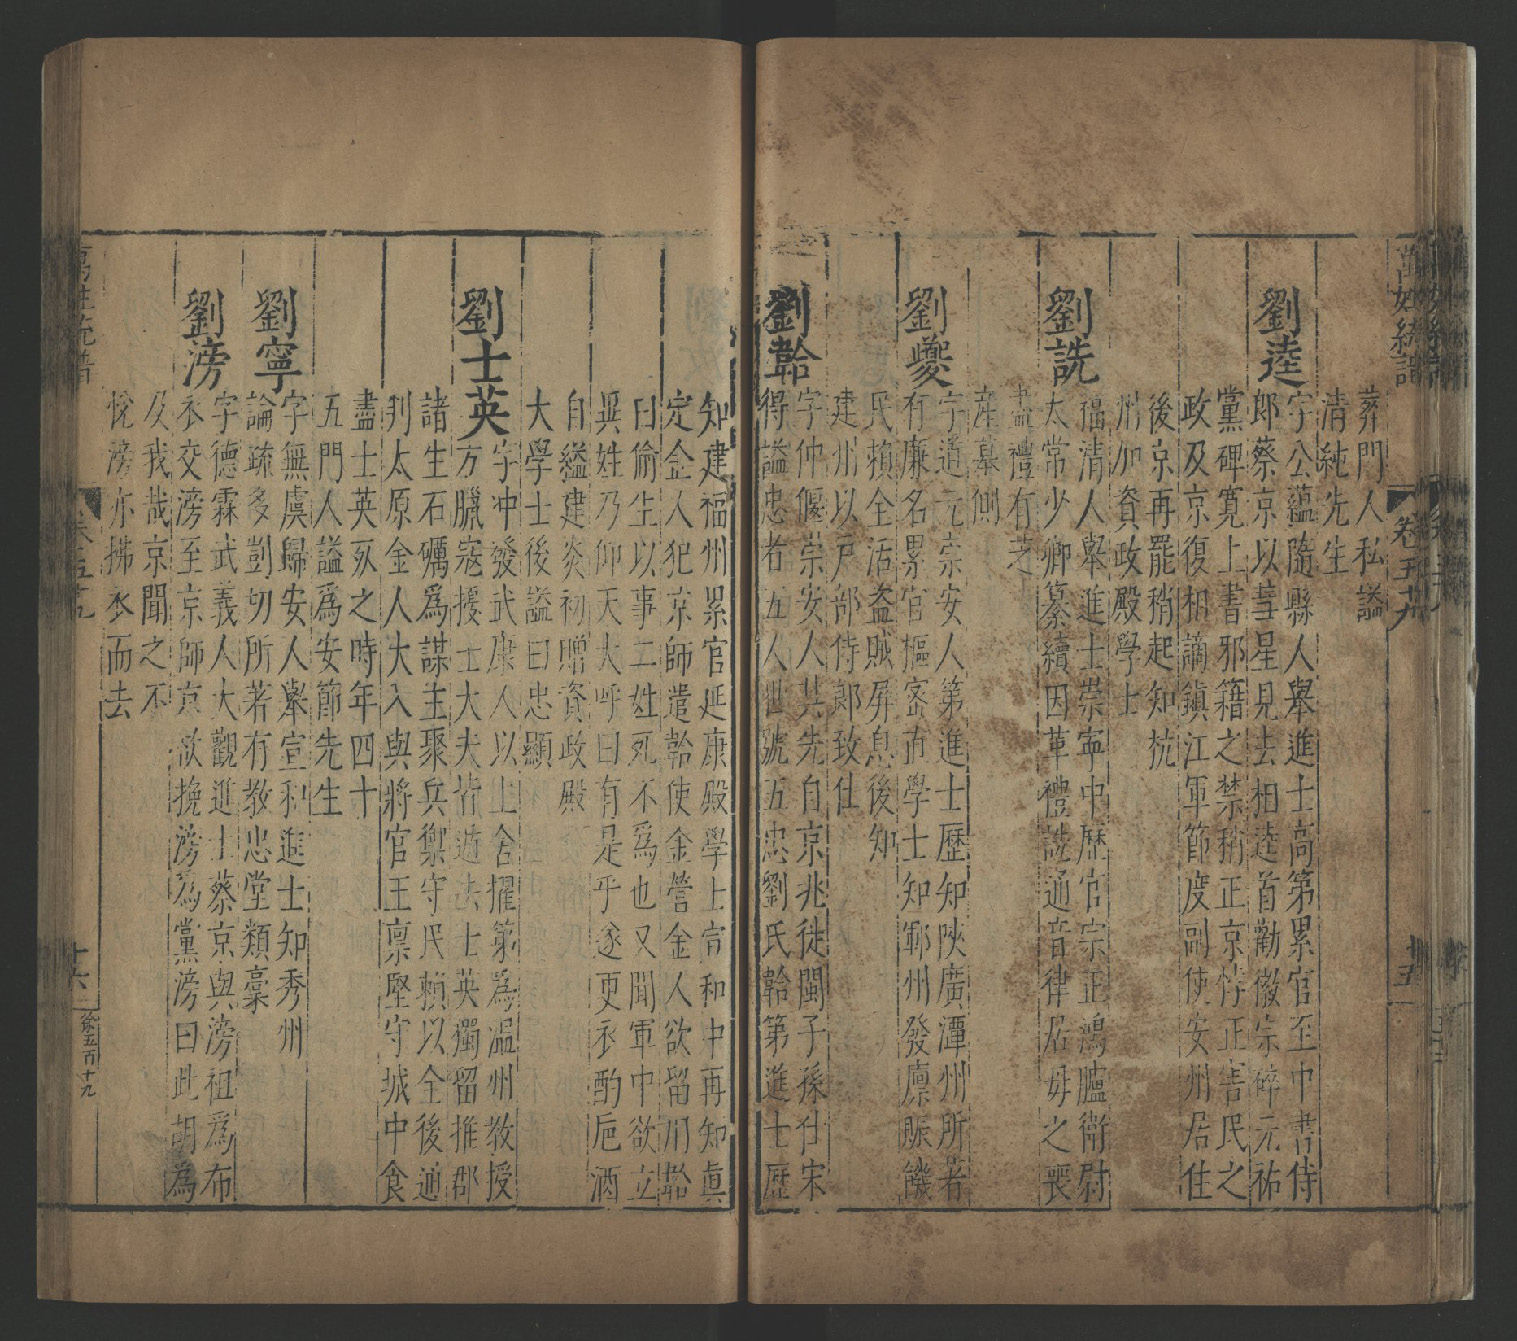 萬姓統譜 卷五十九 十五
葬門人私謚
清純先生
劉逵 字公蘊隨縣人舉進士高第累官至中書侍
郎蔡京以彗星見去相逵首勸徽宗碎元祐
黨碑寬上書邪籍之禁稍正京悖正害民之
政及京復相謫鎮江軍節度副使安州居住
後京再罷稍起知杭
州加資政殿學士
劉詵 福清人舉進士崇寧中歷官宗正鴻臚衛尉
太常少卿纂續因革禮詵通音律居毋之喪
盡禮有芝
產墓側
劉夔 字道元崇安人第進士歷知陜廣潭州所著
有廉名累官樞密直學士知鄆州發廩賑饑
民賴全活盗賊屏息後知
建州以戶部侍郎致仕
劉韐 字仲偃崇安人其先自京兆徙閩子孫仕宋
得謚忠者五人世號五忠劉氏韐第進士歷
知建福州累官延康殿學士宣和中再知眞
定金人犯京師遣韐使金營金人欲留用韐
曰偷生以事二姓死不爲也又聞軍中欲立
異姓乃仰天大呼曰有是乎遂更衣酌巵酒
自縊建炎初贈資政殿
大學士後謚曰忠顯
劉士英 字冲發武康人以上舍擢第爲温州教授
方臘寇擾士大夫皆遁去士英獨留推郡
諸生石礪爲謀主聚兵禦守民賴以全後通
判太原金人大入與將官王禀堅守城中食
盡士英死之時年四十
五門人謚爲安節先生
劉寧 字無虞歸安人舉宣和進士知秀州
論疏多剴切所著有教忠堂類稾
劉滂 字德霖武義人大觀進士蔡京與滂祖爲布
衣交滂至京師京欲挽滂爲黨滂曰此胡爲
及我哉京聞之不
悅滂亦拂衣而去
萬姓統譜 卷五十九 十六 餘五百十九